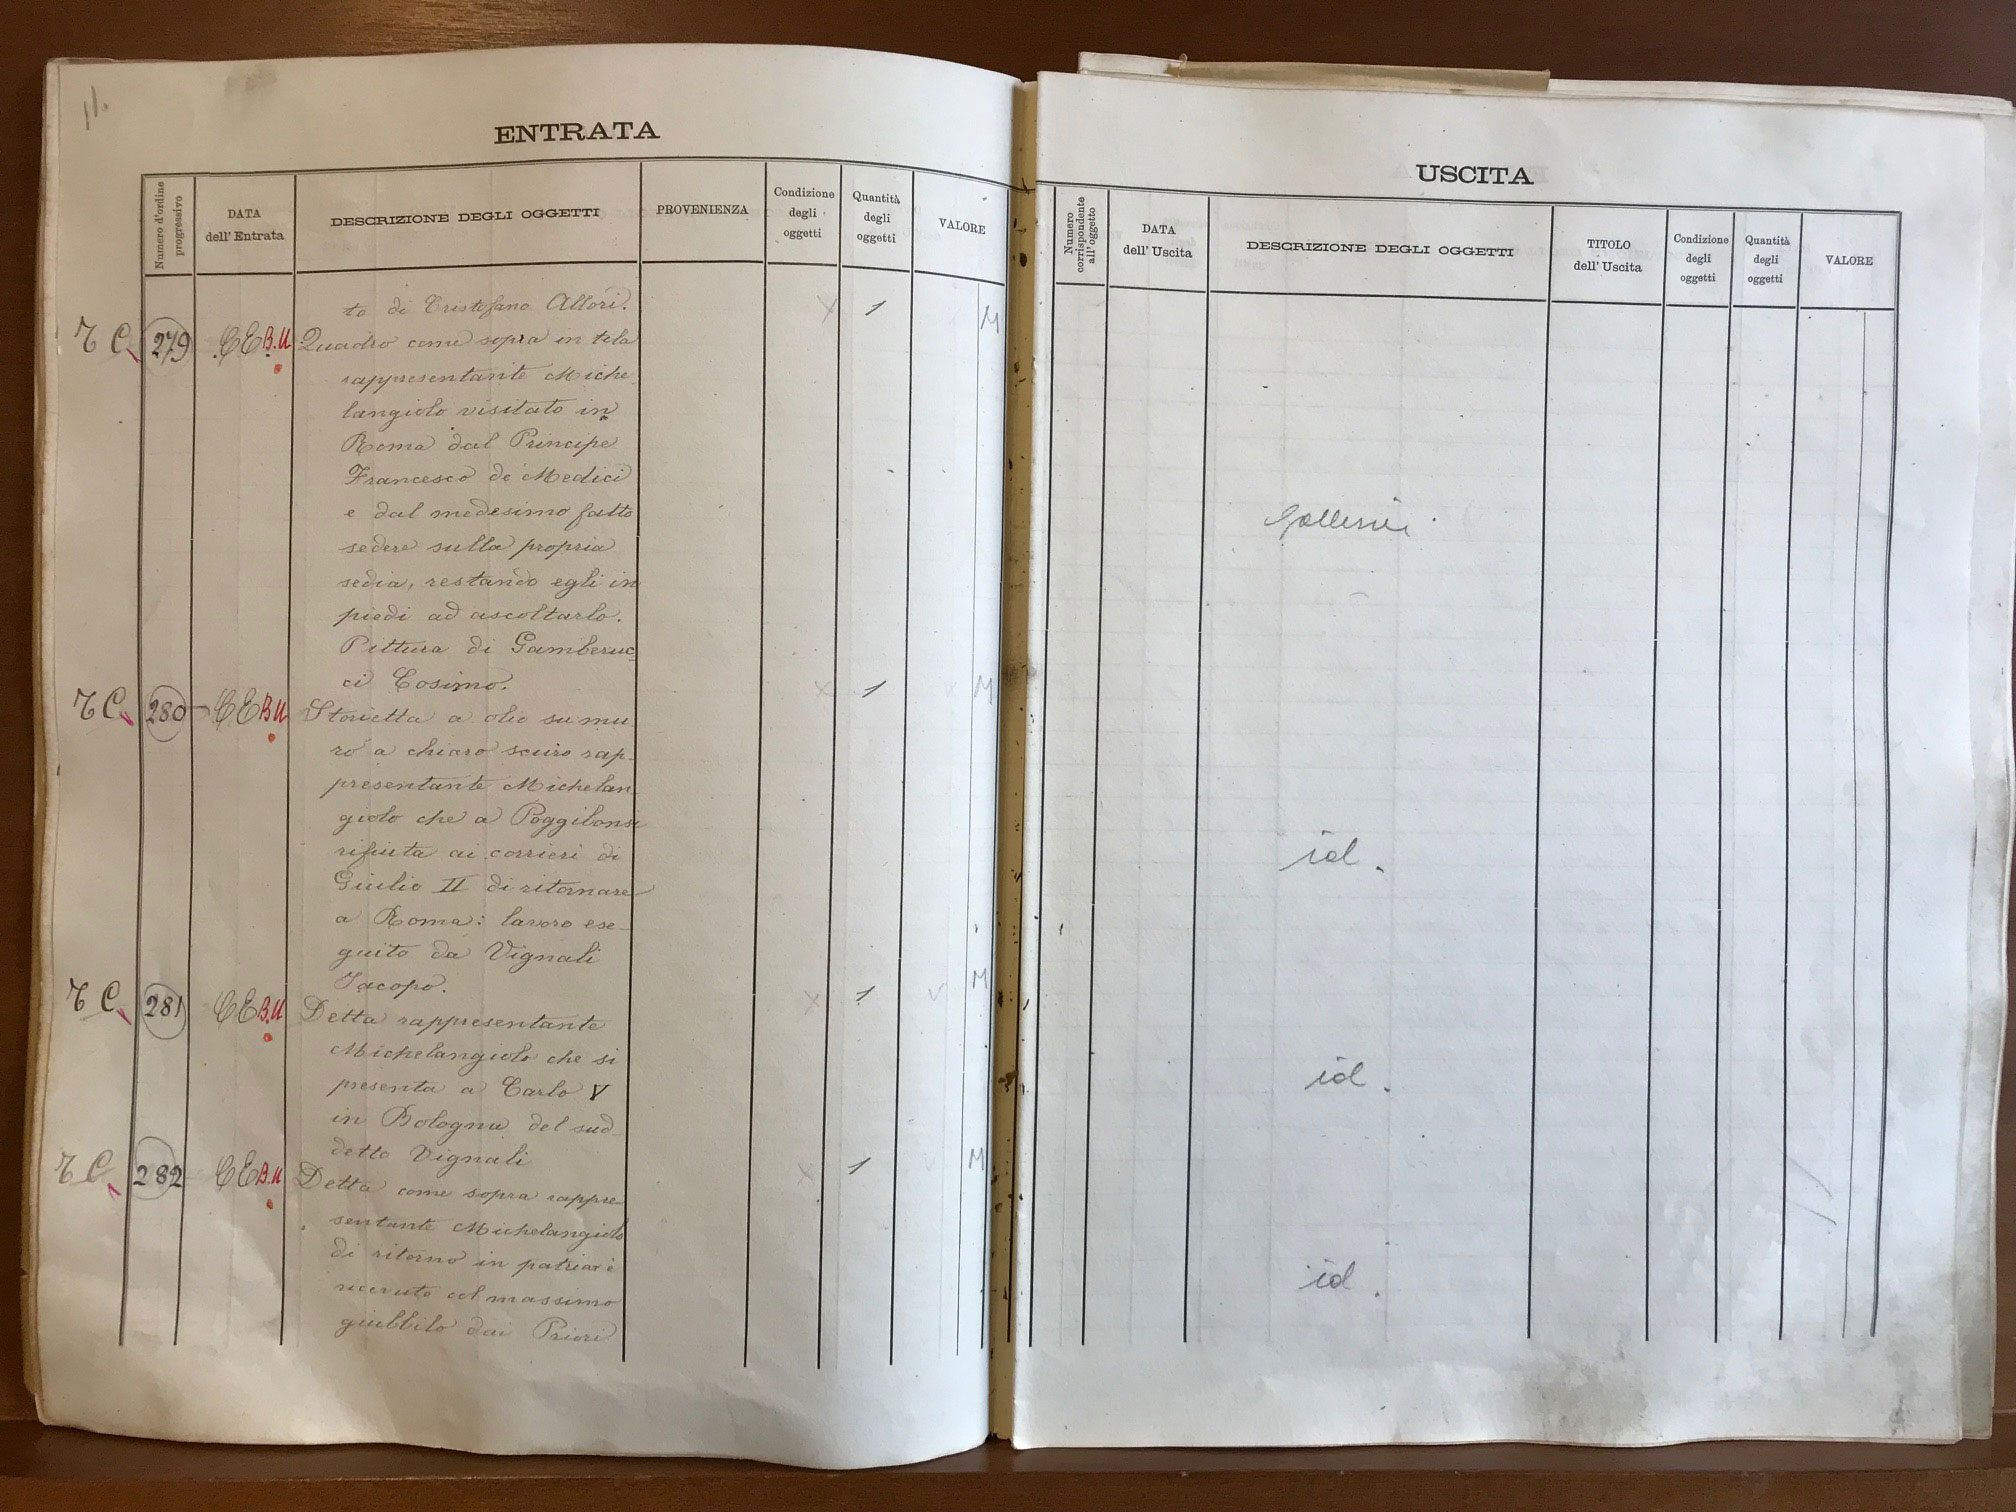 11.
ENTRATA
Numero d'ordine progressivo
DATA dell' Entrata
DESCRIZIONE DEGLI OGGETTI
PROVENIENZA
Condizione degli oggetti
Quantità degli oggetti
VALORE
to di Cristofano Allori. X 1 M
T C 279 C E B.U Quadro come sopra in tela
rappresentante Miche
langiolo visitato in
Roma dal Principe
Francesco de' Medici
e dal medesimo fatto
sedere sulla propria
sedia, restando egli in
piedi ad ascoltarlo.
Pittura di Gamberuc-
ci Cosimo. X 1 v M
T C 280 C E B U Storietta a olio su mu
ro a chiaro scuro rap-
presentante Michelan
giolo che a Poggibonsi
rifiuta ai corrieri di
Giulio II di ritornare
a Roma: lavoro ese-
guito da Vignali
Jacopo. X 1 v M
T C 281 C E B.U Detta rappresentante
Michelangiolo che si
presenta a Carlo V
in Bologna del sud
detto Vignali X 1 v M
T C 282 C E B.U Detta come sopra rappre
sentante Michelangiolo
di ritorno in patria è
ricevuto col massimo
giubbilo dai Priori
USCITA
Numero corrispondente all'oggetto
DATA dell' Uscita
DESCRIZIONE DEGLI OGGETTI
TITOLO dell' Uscita
Condizione degli oggetti
Quantità degli oggetti
VALORE
id.
id.
id.